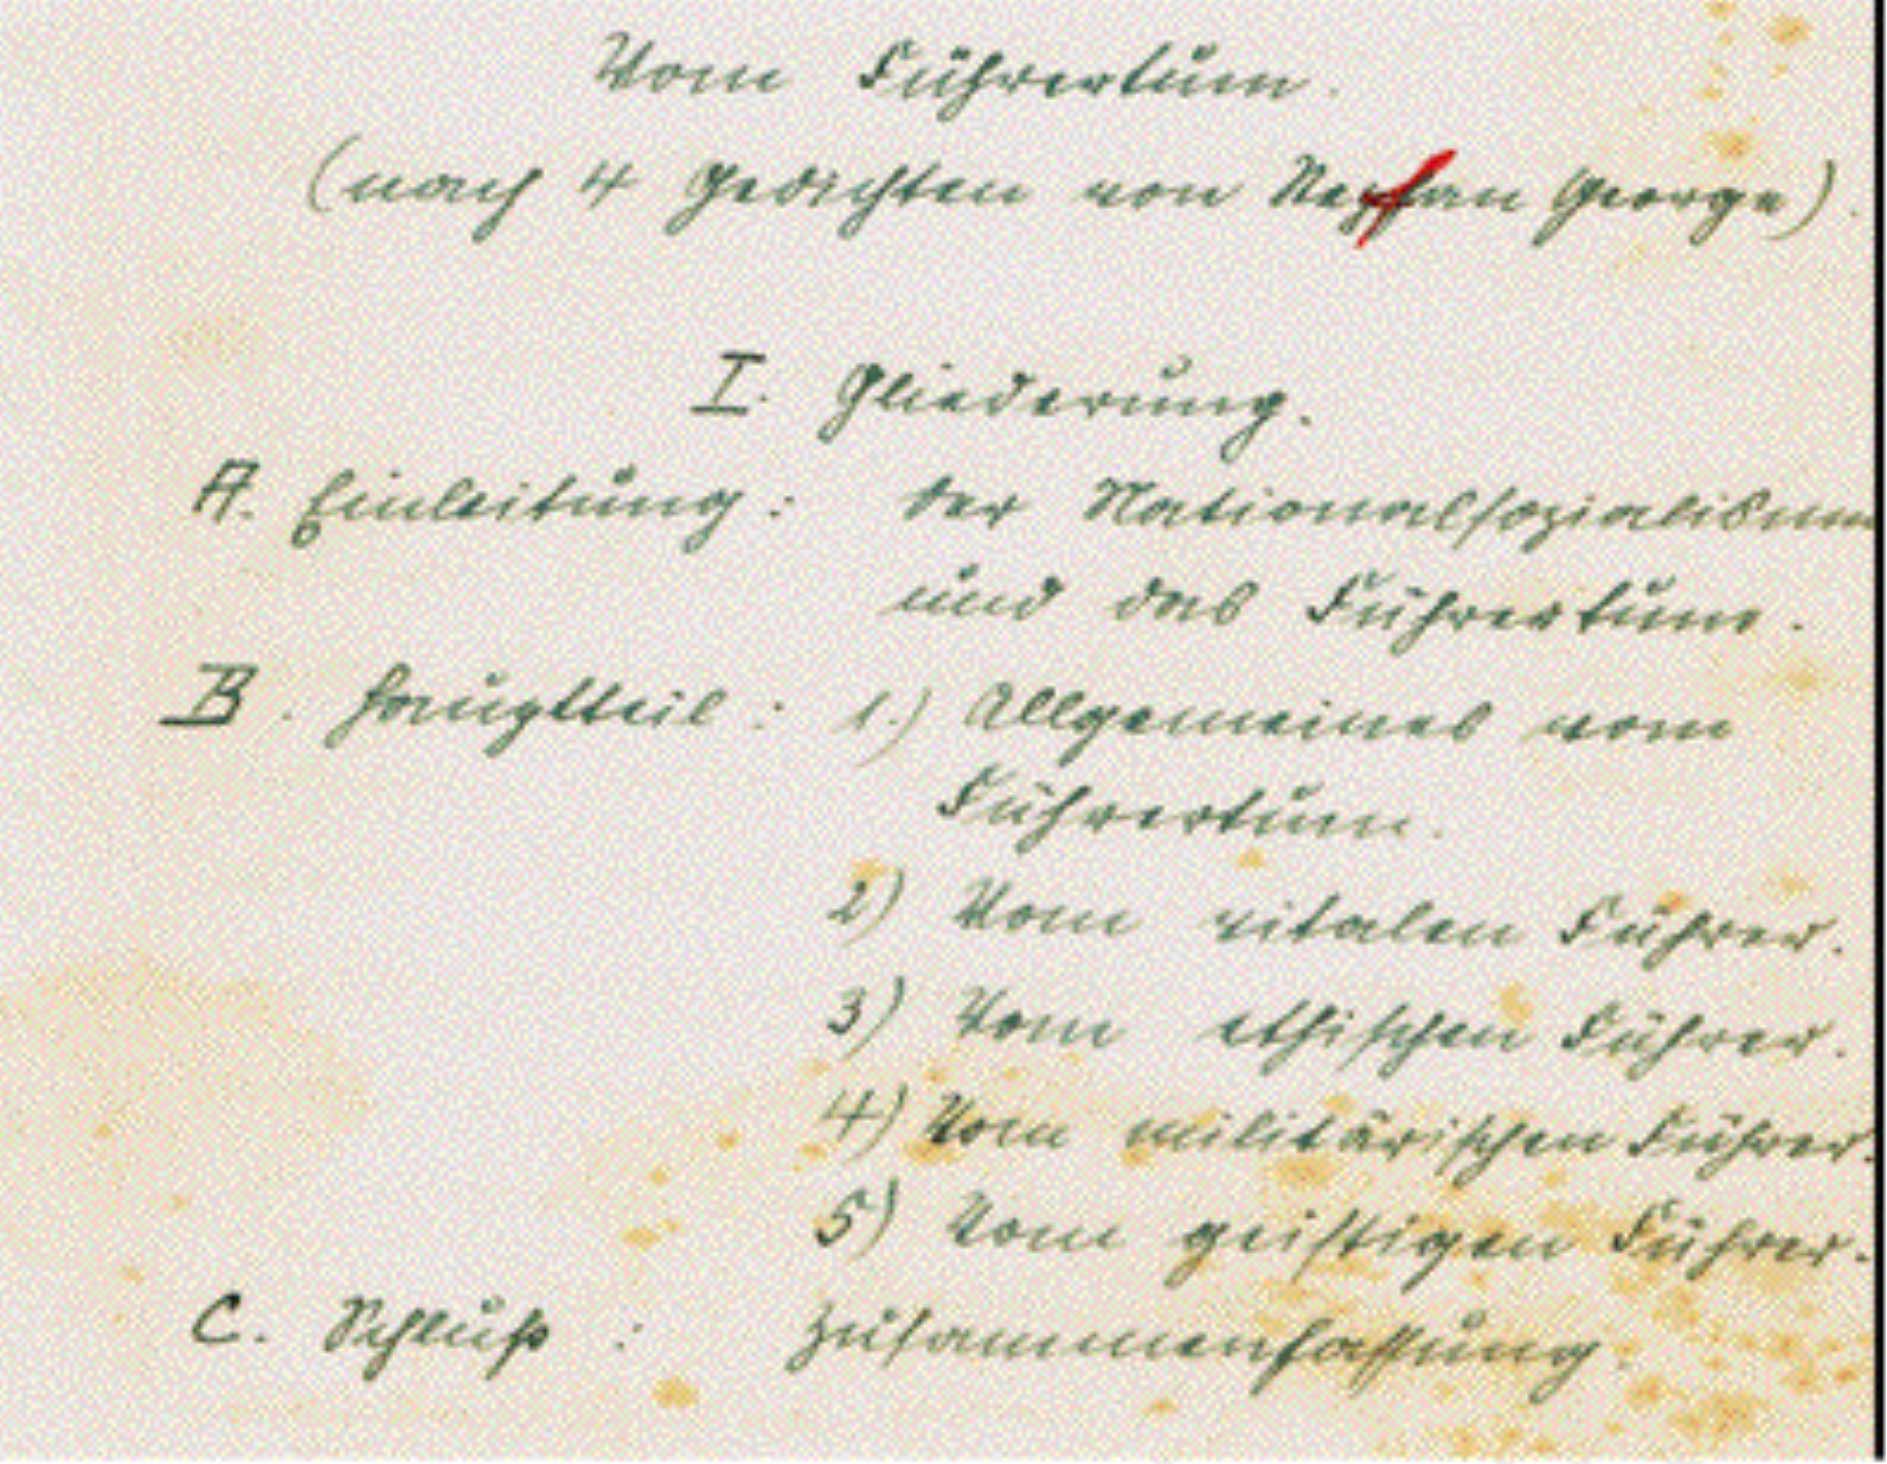 Vom Führertum.
(nach 4 Gedichten von Stephan George).
I. Gliederung.
A. Einleitung: Der Nationalsozialismus
und das Führertum.
B. Hauptteil: 1.) Allgemeines vom
Führertum.
2) Vom vitalen Führer.
3) Vom ethischen Führer.
4) Vom militärischen Führer.
5) Vom geistigen Führer.
C. Schluß: Zusammenfassung.